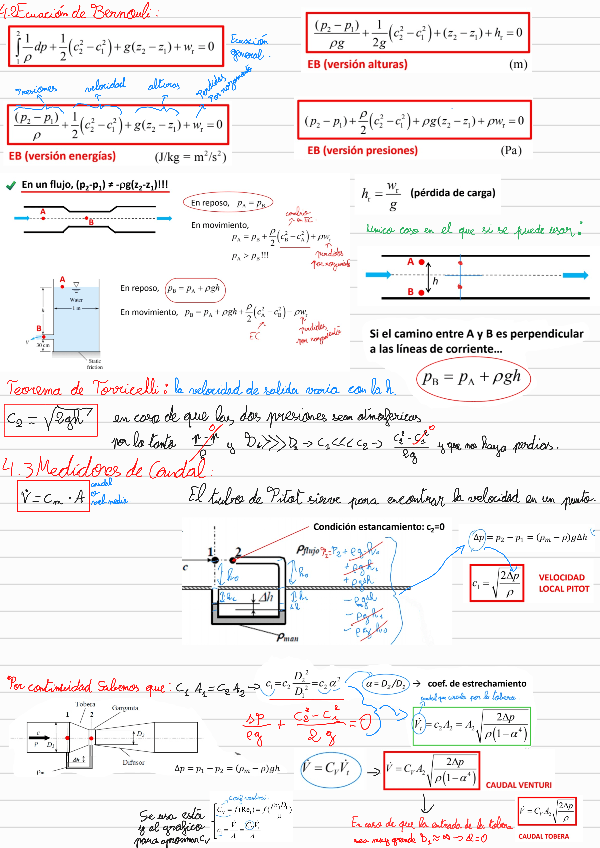 4.2 Ecuación de Bernouli:
∫₁² (1/ρ) dp + 1/2 (c₂² − c₁²) + g(z₂ − z₁) + wᵣ = 0
Ecuación general.
(p₂ − p₁)/ρg + 1/2g (c₂² − c₁²) + (z₂ − z₁) + hᵣ = 0
EB (versión alturas) (m)
Presiones velocidad alturas Perdidas por rozamiento
(p₂ − p₁)/ρ + 1/2 (c₂² − c₁²) + g(z₂ − z₁) + wᵣ = 0
EB (versión energías) (J/kg = m²/s²)
(p₂ − p₁) + ρ/2 (c₂² − c₁²) + ρg(z₂ − z₁) + ρwᵣ = 0
EB (versión presiones) (Pa)
✓ En un flujo, (p₂-p₁) ≠ -ρg(z₂-z₁)!!!
A B
En reposo, p_A = p_B
En movimiento,
p_A = p_B + ρ/2 (c_B² − c_A²) + ρwᵣ
p_A > p_B !!!
perdidas por rozamiento
hᵣ = wᵣ/g (pérdida de carga)
Único caso en el que si se puede usar:
A
h
B
A
Water
1 m
h
B
30 cm
Static friction
En reposo, p_B = p_A + ρgh
En movimiento, p_B = p_A + ρgh + ρ/2 (c_A² − c_B²) − ρwᵣ
EC
perdidas por rozamiento
Si el camino entre A y B es perpendicular
a las líneas de corriente...
p_B = p_A + ρgh
Teorema de Torricelli: la velocidad de salida varia con la h.
C₂ = √2gh en caso de que las dos presiones sean atmosfericas
por lo tanto y D₁>>>D₂ → C₁<<<C₂ → y que no haya perdias.
4.3 Medidores de Caudal:
V̇ = Cm · A caudal
El tubos de Pitot sirve para encontrar la velocidad en un punto.
Condición estancamiento: c₂=0
1 2
c
ρflujo
h₀
Δh
ρman
P₁-P₂ + ρgh₀
+ ρgh₁
+ ρgΔh
− ρgΔh
− ρgh₁
− ρgh₀
Δp = p₂ − p₁ = (ρm − ρ)gΔh
c₁ = √(2Δp/ρ)
VELOCIDAD
LOCAL PITOT
Por continuidad sabemos que: C₁ A₁ = C₂ A₂ → c₁ = c₂ D₂²/D₁² = c₂ α²
α = D₂/D₁ → coef. de estrechamiento
Tobera
Garganta
1 2
c
p D₁ D₂
Difusor
Δh
Δp/ρg + (C₂² − C₁²)/2g = 0
caudal que circula por la tobera
V̇ₜ = c₂A₂ = A₂ √(2Δp/ρ(1−α⁴))
Δp = p₁ − p₂ = (ρm − ρ)gh
V̇ = C_V V̇ₜ → V̇ = C_V A₂ √(2Δp/ρ(1−α⁴))
CAUDAL VENTURI
Se usa está
y el grafico
para aproximar Cv
En caso de que la entrada de la tobera
sea muy grande D₁ ≈ ∞ → α = 0
V̇ = C_V A₂ √(2Δp/ρ)
CAUDAL TOBERA